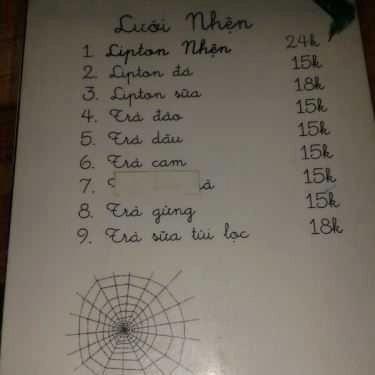 Lưới Nhện
1 Lipton Nhện 24k
2. Lipton đá 15k
3. Lipton sữa 18k
4. Trà đào 15k
5. Trà dâu 15k
6. Trà cam 15k
7. 15k
8. Trà gừng 15k
9. Trà sữa túi lọc 18k